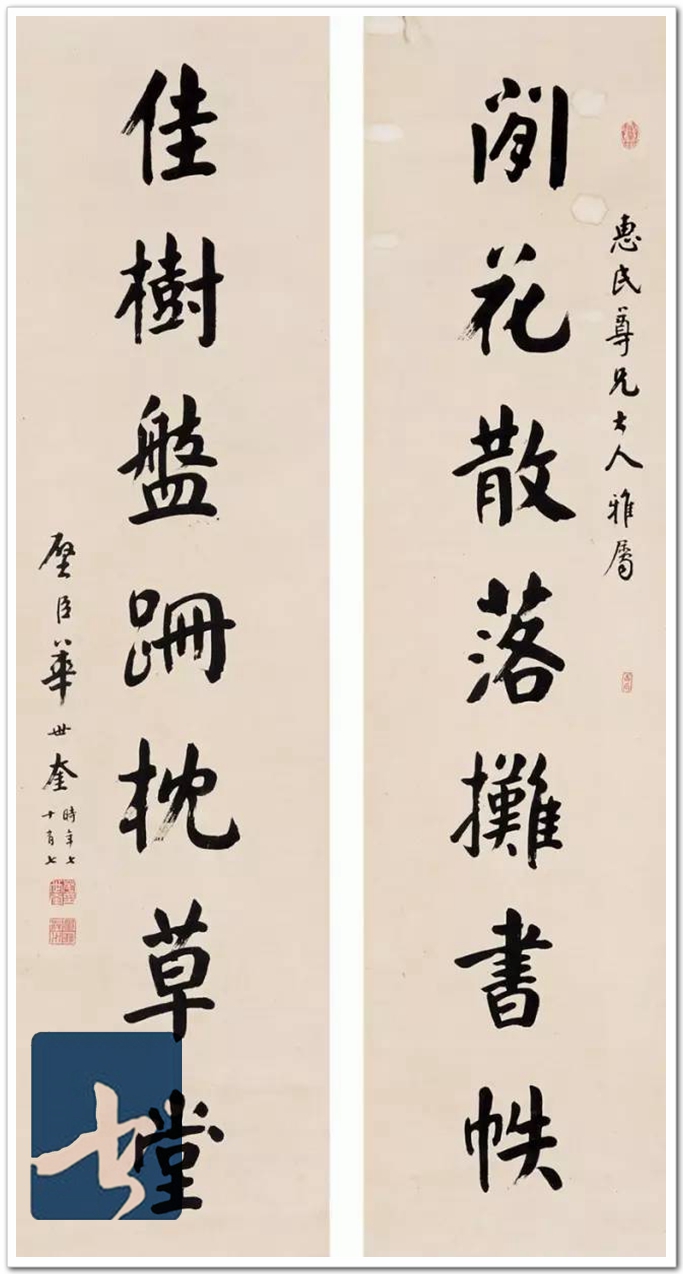 惠民尊兄大人雅屬
閒花散落攤書帙
佳樹盤跚枕草堂
璧臣華世奎時年七
十有七